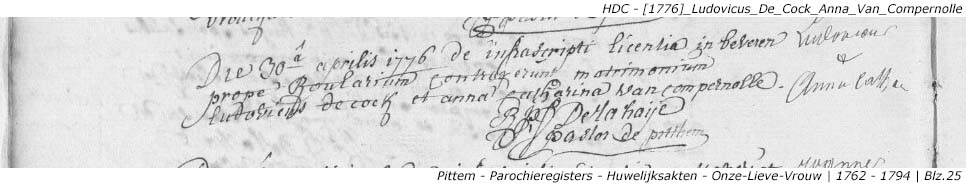 HDC - [1776]_Ludovicus_De_Cock_Anna_Van_Compernolle
Die 30â aprilis 1776 de infrascripti licentia in beveren
prope Roularium contraxerunt matrimonium
Ludovicus de cock et anna catharina van compernolle.
Ludovicus
&
Anna Catha
Delahaije
pastor de pitthem
Pittem - Parochieregisters - Huwelijksakten - Onze-Lieve-Vrouw | 1762 - 1794 | Blz.25